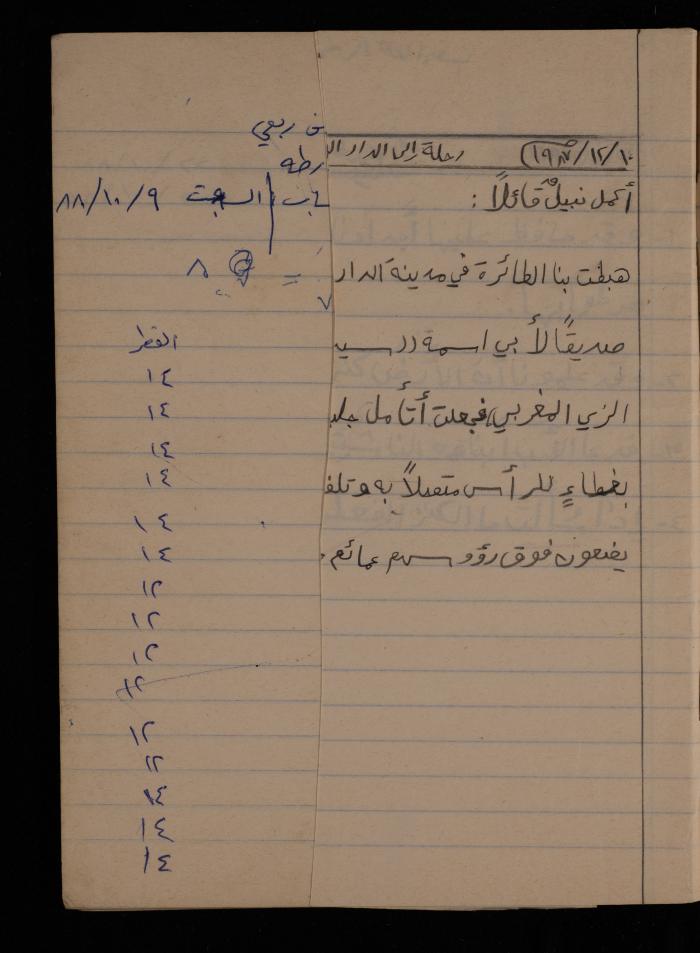 ١٩٨٧/١٢/١٠ رحلة إلى الدار ال
أكمل نبيلٌ قائلاً :
هبطت بنا الطائرة في مدينة الدار
صديقًا لأبي اسمة ((سيد
الزي المغربي، فجعلت أتأمل جلب
بغطاءٍ للرأس متصلاً به وتلف
يضعون فوق رؤوسهم عمائم
ربعي
السبت ٨٨/١٠/٩
= ٨
٧
القطر
١٤
١٤
١٤
١٤
١٤
١٤
١٢
١٢
١٢
١٢
١٢
١٢
١٤
١٤
١٤